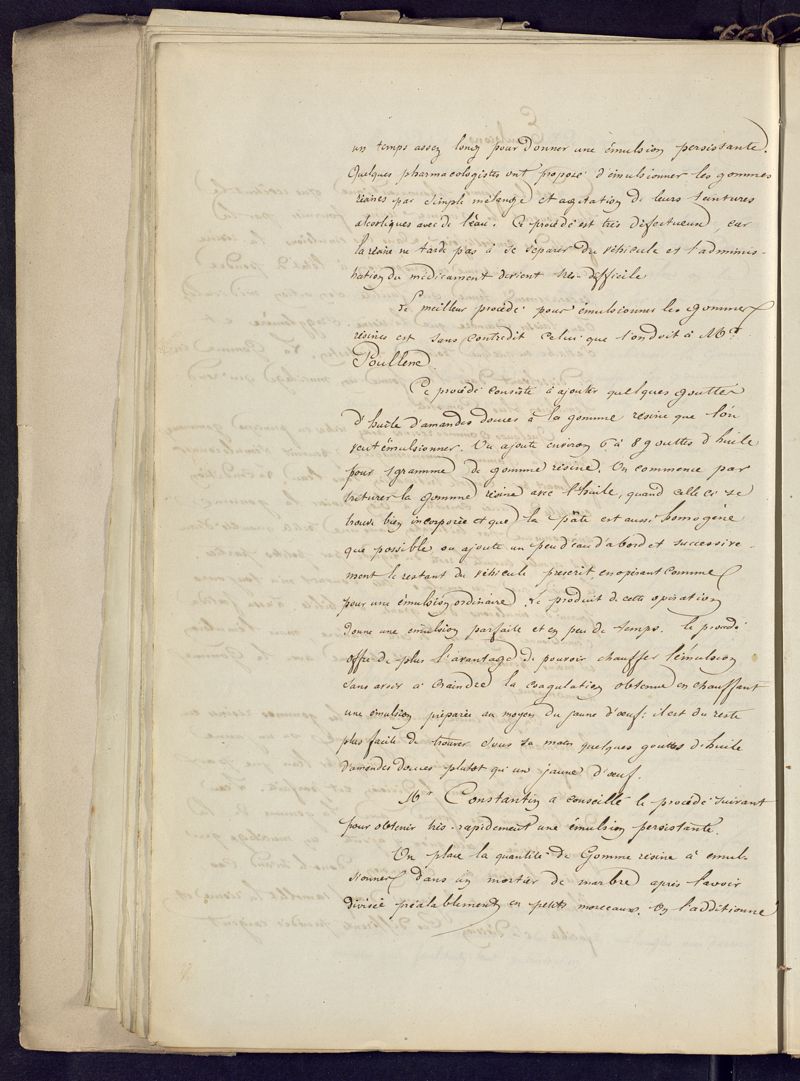 un temps assez long pour donner une émulsion persistante.
Quelques pharmacologistes ont proposé d'émulsionner les gommes
résines par simple mélange et agitation de leurs teintures
alcooliques avec de l'eau. Ce procédé est très défectueux, car
la résine ne tarde pas à se séparer du véhicule et l'adminis-
tration du médicament devient très difficile
Le meilleur procédé pour émulsionner les gommes
résines est sans contredit celui que l'on doit à Mr
Poullene.
Ce procédé consiste à ajouter quelques gouttes
d'huile d'amandes douces à la gomme résine que l'on
veut émulsionner. On ajoute environ 6 à 8 gouttes d'huile
pour 1 gramme de gomme résine. On commence par
triturer la gomme résine avec l'huile, quand celle ci se
trouve bien incorporée et que la pâte est aussi homogène
que possible on ajoute un peu d'eau d'abord et successive-
ment le restant du véhicule prescrit, en opérant comme
pour une émulsion ordinaire. Le produit de cette opération
donne une émulsion parfaite et en peu de temps. Le procédé
offre de plus l'avantage de pouvoir chauffer l'émulsion
sans avoir à craindre la coagulation obtenue en chauffant
une émulsion préparée au moyen du jaune d'œuf. il est du reste
plus facile de trouver sous sa main quelques gouttes d'huile
d'amandes douces plutot qu'un jaune d'œuf.
Mr Constantin a conseillé le procédé suivant
pour obtenir très-rapidement une émulsion persistante.
On place la quantité de Gomme résine à émul-
sionner dans un mortier de marbre après l'avoir
divisée préalablement en petits morceaux. On l'additionne